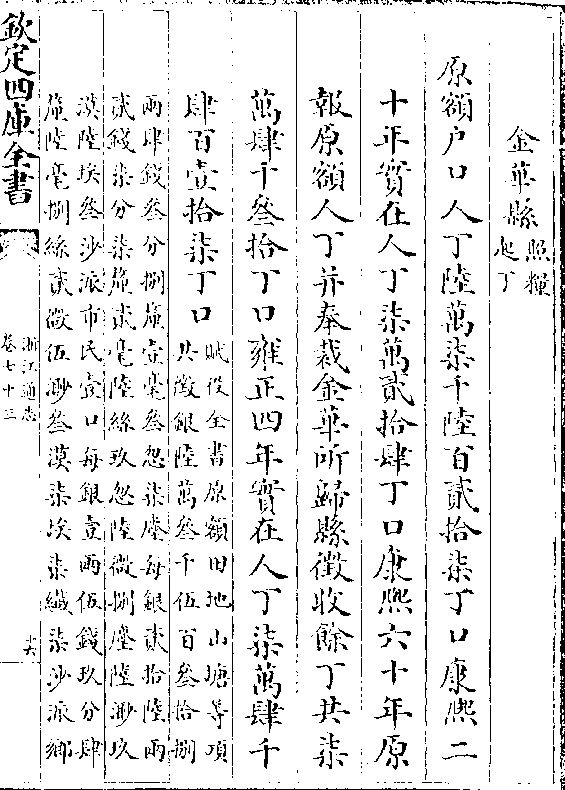 金華縣 照糧
起丁
原額户口人丁陸萬柒千陸百貳拾柒丁口康熙二
十年實在人丁柒萬貳拾肆丁口康熙六十年原
報原額人丁并奉裁金華所歸縣徴收餘丁共柒
萬肆千叁拾丁口雍正四年實在人丁柒萬肆千
肆百壹拾柒丁口 賦役全書原額田地山塘等項
共徴銀陸萬叁千伍百叁拾捌
兩肆錢叁分捌釐壹毫叁忽柒塵每銀貳拾陸兩
貳錢柒分柒釐貳毫陸絲玖忽陸微捌塵陸渺玖
漠陸埃叁沙派市民壹口每銀壹兩伍錢玖分肆
釐陸毫捌絲貳微伍渺叁漠柒埃柒纎柒沙派鄉
欽定四庫全書
浙江通志
卷七十三
十六